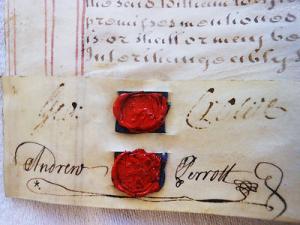 the said William
premisses mentioned
is or shall or may be
Inheritance
Geo: Crowe
Andrew Perrott